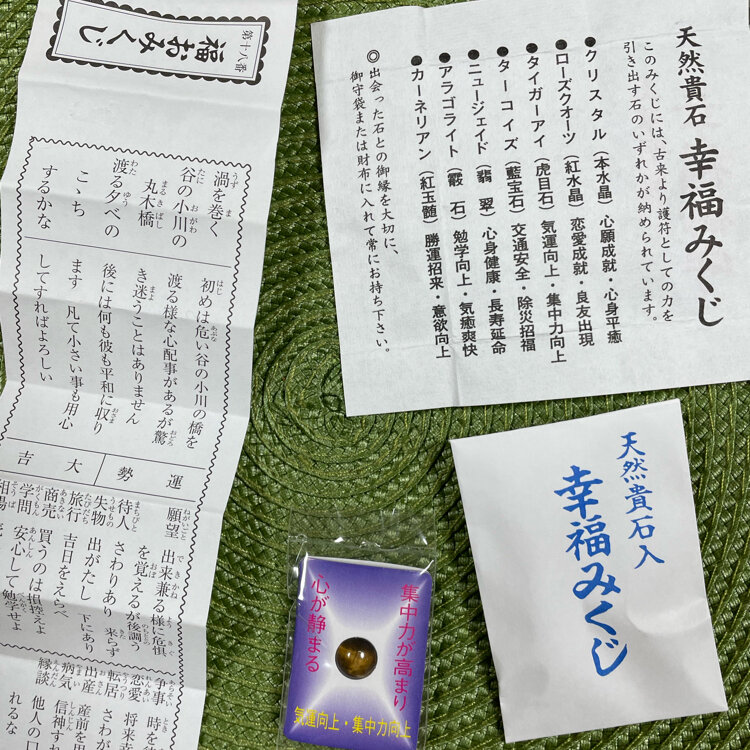 第十八番
福おみくじ
渦を巻く
谷の小川の
丸木橋
渡る夕べの
こゝち
するかな
初めは危い谷の小川の橋を
渡る様な心配事があるが驚
き迷うことはありません
後には何も彼も平和に収り
ます 凡て小さい事も用心
してすればよろしい
運勢 大吉
願望 出来兼る様に危惧
を覚えるが後調う
待人 さわりあり 来らず
失物 出がたし 下にあり
旅行 吉日をえらべ
商売 買うのは損控えよ
学問 安心して勉学せよ
相場
争事 時を
恋愛 将来幸
転居 さわが
出産 産前を
病気 信神すれ
縁談 他人の口
れるな
天然貴石 幸福みくじ
このみくじには、古来より護符としての力を
引き出す石のいずれかが納められています。
●クリスタル(本水晶)心願成就・心身平癒
●ローズクオーツ(紅水晶)恋愛成就・良友出現
●タイガーアイ(虎目石)気運向上・集中力向上
●ターコイズ(藍宝石)交通安全・除災招福
●ニュージェイド(翡翠)心身健康・長寿延命
●アラゴライト(霰石)勉学向上・気癒爽快
●カーネリアン(紅玉髄)勝運招来・意欲向上
◎出会った石との御縁を大切に、
御守袋または財布に入れて常にお持ち下さい。
集中力が高まり
心が静まる
気運向上・集中力向上
天然貴石入
幸福みくじ